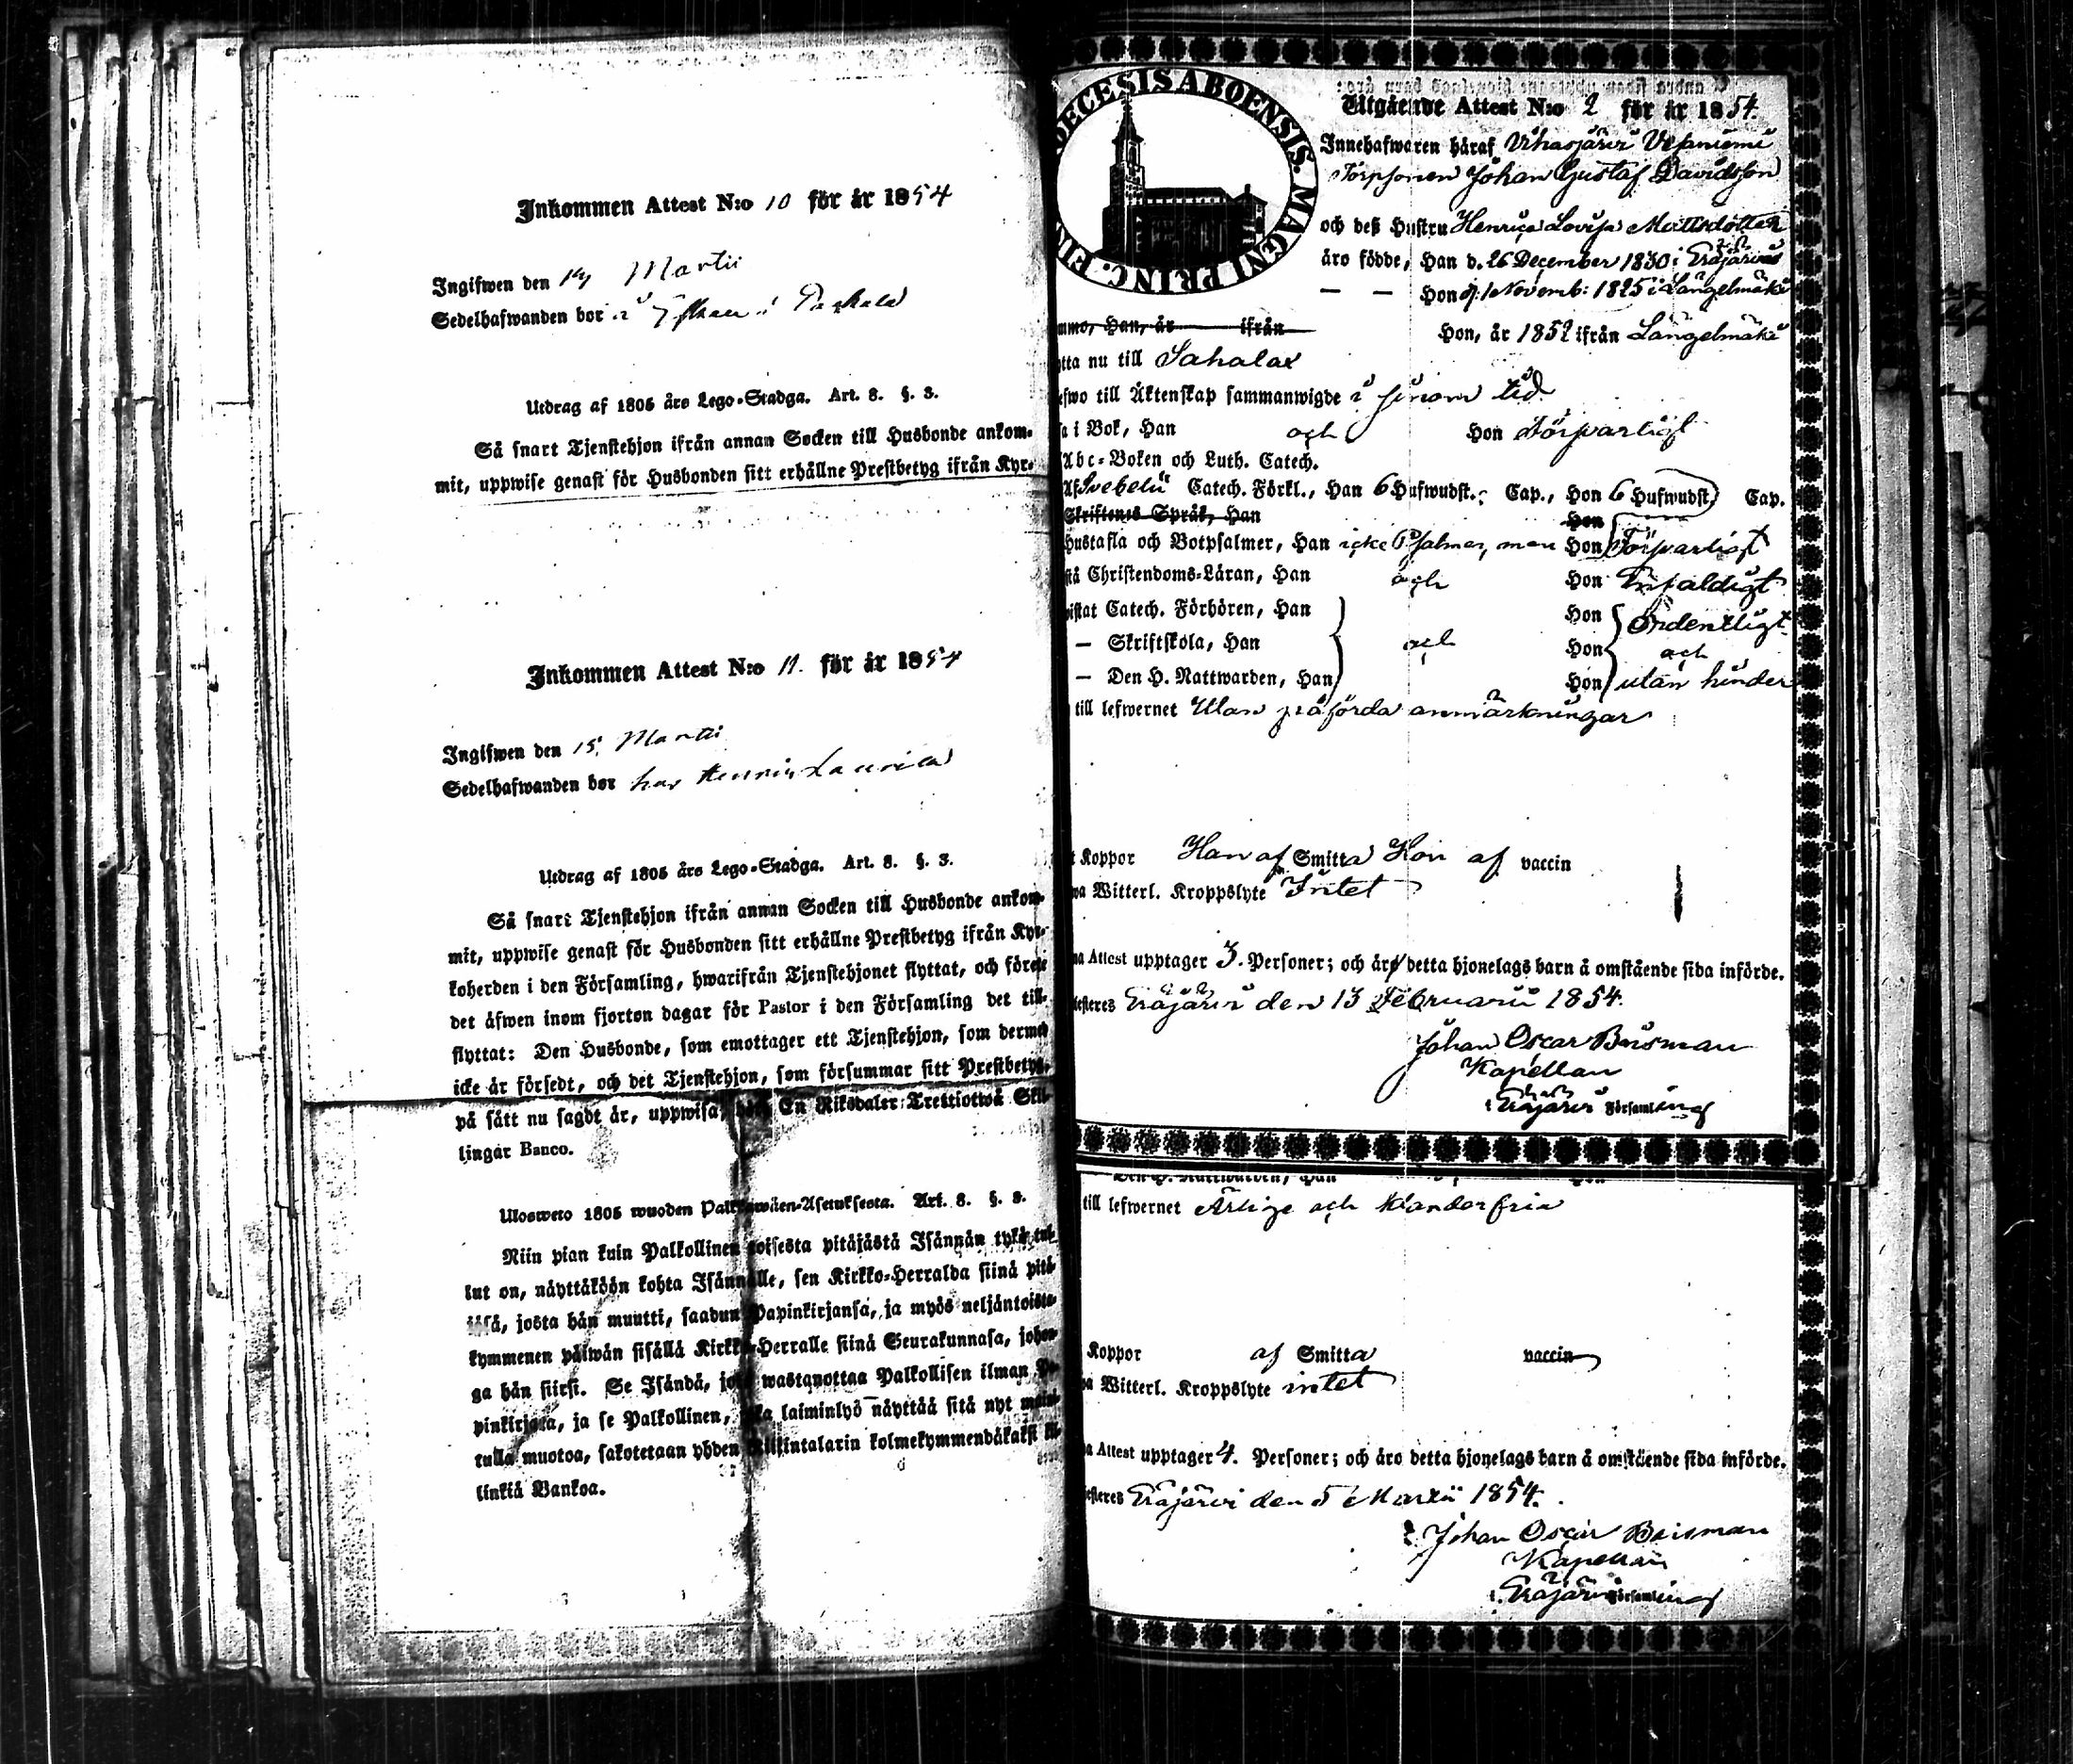 Inkommen Attest N:o 10 för år 1854
Ingifwen den 14 Martii
Sedelhafwanden bor i
Utdrag af 1805 års Lego-Stadga. Art. 8. §. 3.
Så snart Tjenstehjon ifrån annan Socken till Husbonde ankom-
mit, uppwise genast för Husbonden sitt erhållne Prestbetyg ifrån Kyr-
Inkommen Attest N:o 11. för år 1854
Ingifwen den 15 Martii
Sedelhafwanden bor hos
Utdrag af 1805 års Lego-Stadga. Art. 8. §. 3.
Så snart Tjenstehjon ifrån annan Socken till Husbonde ankom-
mit, uppwise genast för Husbonden sitt erhållne Prestbetyg ifrån Kyr-
koherden i den Församling, hwarifrån Tjenstehjonet flyttat, och förete
det äfwen inom fjorton dagar för Pastor i den Församling det till-
flyttat: Den Husbonde, som emottager ett Tjenstehjon, som dermed
icke är försedt, och det Tjenstehjon, som försummar sitt Prestbetyg,
på sätt nu sagdt är, uppwisa, En Riksdaler Trettiotwå Skil-
lingar Banco.
Ulosweto 1805 wuoden Art. 8. §. 3.
Niin pian kuin Palkollinen toisesta pitäjästä Isännän tykö tul-
lut on, näyttäköön kohta Isännälle, sen Kirkko-Herralda siinä pitä-
jäsä, josta hän muutti, saadun Papinkirjansa, ja myös neljäntoista-
kymmenen päiwän sisällä Kirkko-Herralle siinä Seurakunnasa, johon-
ga hän siirsi. Se Isändä, joka wastanottaa Palkollisen ilman Pa-
pinkirjata, ja se Palkollinen, joka laiminlyö näyttää sitä nyt
tulla muotoa, sakotetaan yhden Riksintalarin kolmekymmendäkaksi kil-
linkiä Bankoa.
DECESIS ABOENSIS. MAGNI PRINC. FIN
Utgående Attest N:o 2 för år 1854.
Innehafwaren häraf Vihasjärvi Vepsniemi
Torpsonen Johan Gustaf Davidsson
och deß Hustru Henrica Lovisa Mattsdotter
äro födde, Han d. 26 December 1830 i Eräjärvi
— — Hon d. 1 Novemb: 1825 i Längelmäki
mmo, Han, år ifrån Hon, år 1852 ifrån Längelmäki
tta nu till Sahalax
efwo till Äktenskap sammanwigde i sinom tid
sa i Bok, Han och Hon Förswarligt
Abc-Boken och Luth. Catech.
Af Svebelii Catech. Förkl., Han 6 Hufwudst. Cap., Hon 6 Hufwudst. Cap.
Skriftenes Språk, Han Hon
Hustafla och Botpsalmer, Han icke Psalmer, men Hon Försvarligt
stå Christendoms-Läran, Han och Hon Enfaldigt
wistat Catech. Förhören, Han Hon Ordentligt
— Skriftskola, Han och Hon och
— Den H. Nattwarden, Han Hon utan hinder
till lefwernet Utan påförda anmärkningar
t Koppor Han af Smitta Hon af vaccin
wa Witterl. Kroppslyte Intet
na Attest upptager 3. Personer; och äro detta hjonelags barn å omstående sida införde.
esteres Eräjärvi den 13 Februarii 1854.
Johan Oscar Boisman
Kapellan
i Eräjärvi Församling
Den H. Nattwarden, Han Hon
till lefwernet Ärlige och klanderfria
Koppor af Smitta vaccin
wa Witterl. Kroppslyte intet
a Attest upptager 4. Personer; och äro detta hjonelags barn å omstående sida införde.
esteres Eräjärvi den 5 Martii 1854.
Johan Oscar Boisman
Kapellan
i Eräjärvi Församling